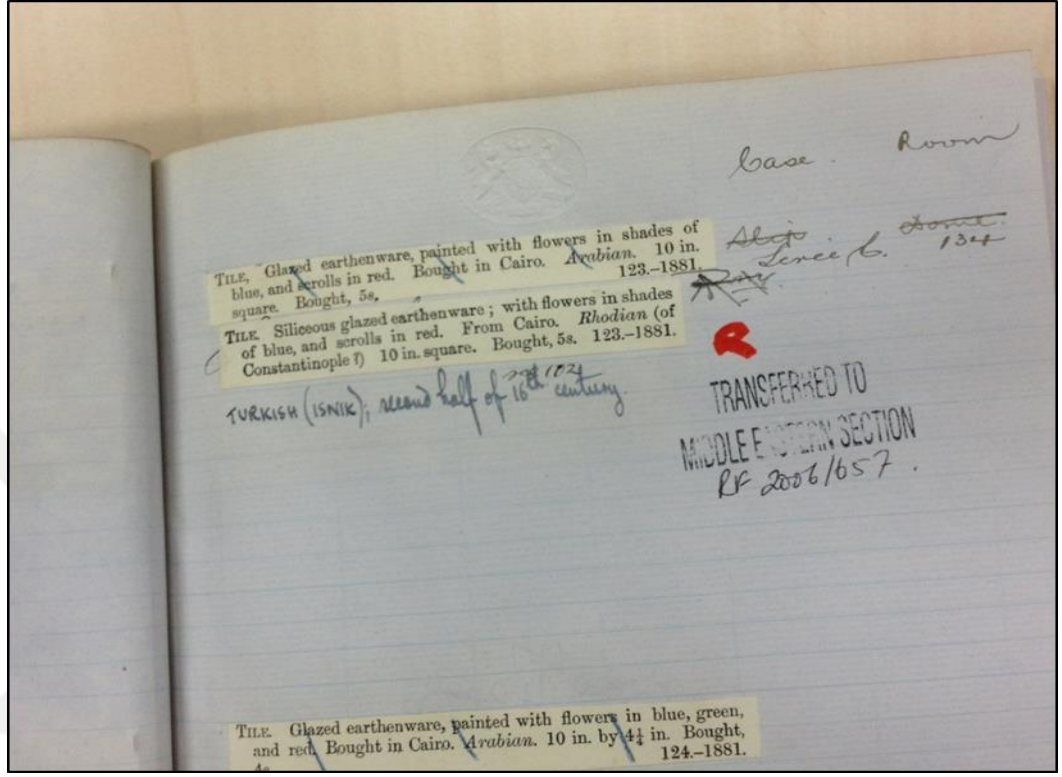 Case. Room
Slip Dome.
Level C. 134
TILE, Glazed earthenware, painted with flowers in shades of
blue, and scrolls in red. Bought in Cairo. Arabian. 10 in.
square. Bought, 5s. 123.–1881.
TILE. Siliceous glazed earthenware; with flowers in shades
of blue, and scrolls in red. From Cairo. Rhodian (of
Constantinople ?) 10 in. square. Bought, 5s. 123.–1881.
TURKISH (ISNIK); second half of 16th century.
TRANSFERRED TO
MIDDLE EASTERN SECTION
RF 2006/657.
TILE. Glazed earthenware, painted with flowers in blue, green,
and red. Bought in Cairo. Arabian. 10 in. by 4¼ in. Bought,
124.–1881.